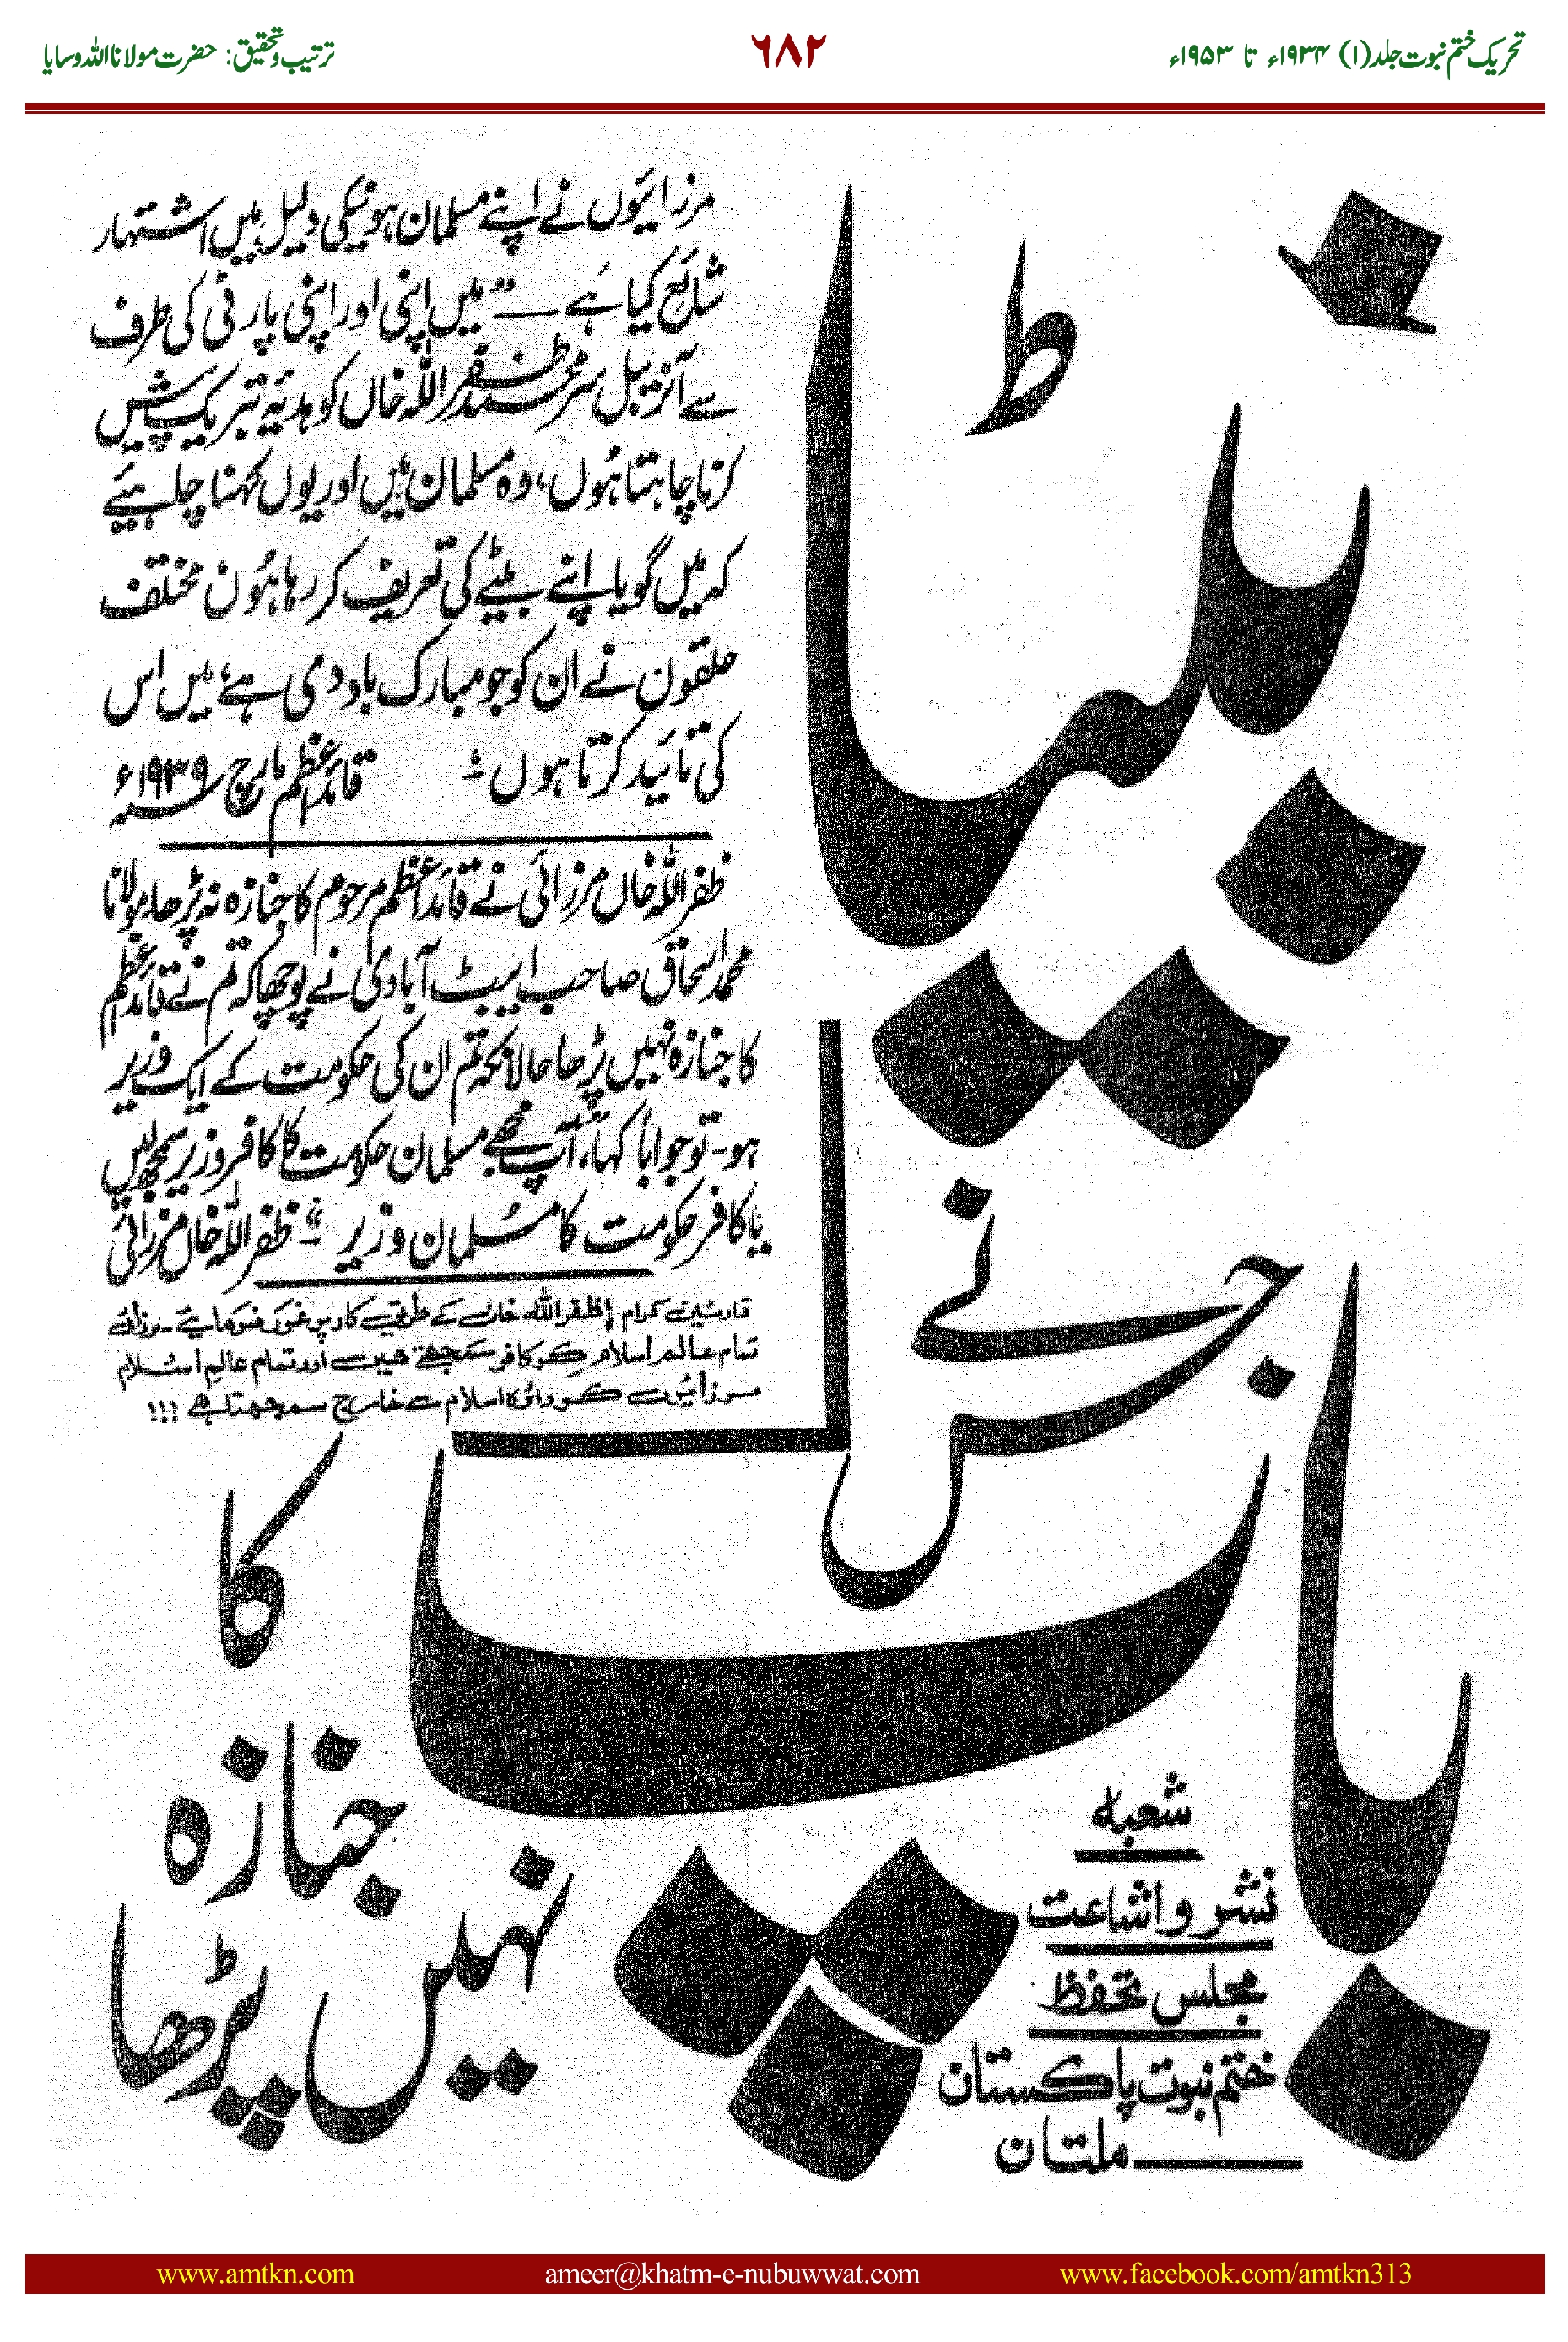 تحریک ختم نبوت جلد(۱) ۱۹۳۴ء تا ۱۹۵۳ء
۶۸۲
ترتیب و تحقیق: حضرت مولانا اللہ وسایا
بیٹا
جس نے
باپ
کا
جنازہ
نہیں
پڑھا
مرزائیوں نے اپنے مسلمان ہونیکی دلیل میں اشتہار
شائع کیا ہے ــ "میں اپنی اور اپنی پارٹی کی طرف
سے آنریبل سر محمد ظفر اللہ خاں کو ہدیۂ تبریک پیش
کرنا چاہتا ہوں، وہ مسلمان ہیں اور یوں کہنا چاہیئے
کہ میں گویا اپنے بیٹے کی تعریف کر رہا ہوں مختلف
حلقوں نے ان کو جو مبارک باد دی ہے، میں اس
کی تائید کرتا ہوں" قائد اعظم مارچ سنہ ۱۹۳۹ء
ظفر اللہ خاں مرزائی نے قائد اعظم مرحوم کا جنازہ نہ پڑھا، مولانا
محمد اسحاق صاحب ایبٹ آبادی نے پوچھا کہ تم نے قائد اعظم
کا جنازہ نہیں پڑھا حالانکہ تم ان کی حکومت کے ایک وزیر
ہو۔ تو جواباً کہا، "آپ مجھے مسلمان حکومت کا کافر وزیر سمجھ لیں
یا کافر حکومت کا مسلمان وزیر"۔ ظفر اللہ خاں مرزائی
قارئین کرام! ظفر اللہ خاں کے طریق کار پر غور فرمائیے۔ مرزائی
تمام عالم اسلام کو کافر سمجھتے ہیں اور تمام عالم اسلام
مرزائیوں کو دائرہ اسلام سے خارج سمجھتا ہے !!!
شعبہ
نشر و اشاعت
مجلس تحفظ
ختم نبوت پاکستان
ملتان
www.amtkn.com
ameer@khatm-e-nubuwwat.com
www.facebook.com/amtkn313